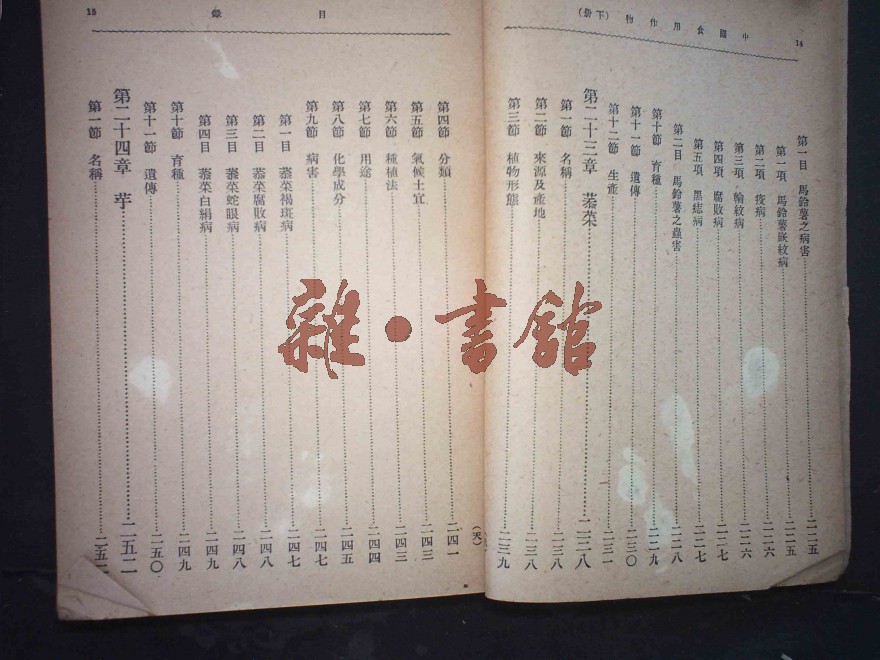 中國食用作物(下册) 14
第一目 馬鈴薯之病害 二二五
第一項 馬鈴薯嵌紋病 二二五
第二項 疫病 二二六
第三項 輪紋病 二二六
第四項 腐敗病 二二七
第五項 黑痣病 二二七
第二目 馬鈴薯之蟲害 二二八
第十節 育種 二二九
第十一節 遺傳 二三〇
第十二節 生產 二三一
第二十三章 蒤菜
第一節 名稱 二三八
第二節 來源及產地 二三八
第三節 植物形態 二三九
目錄 15
第四節 分類 二四一
第五節 氣候土宜 二四三
第六節 種植法 二四三
第七節 用途 二四四
第八節 化學成分 二四五
第九節 病害 二四七
第一目 蒤菜褐斑病 二四七
第二目 蒤菜腐敗病 二四八
第三目 蒤菜蛇眼病 二四八
第四目 蒤菜白絹病 二四九
第十節 育種 二四九
第十一節 遺傳 二五〇
第二十四章 芋 二五二
第一節 名稱
(天)
雜·書館